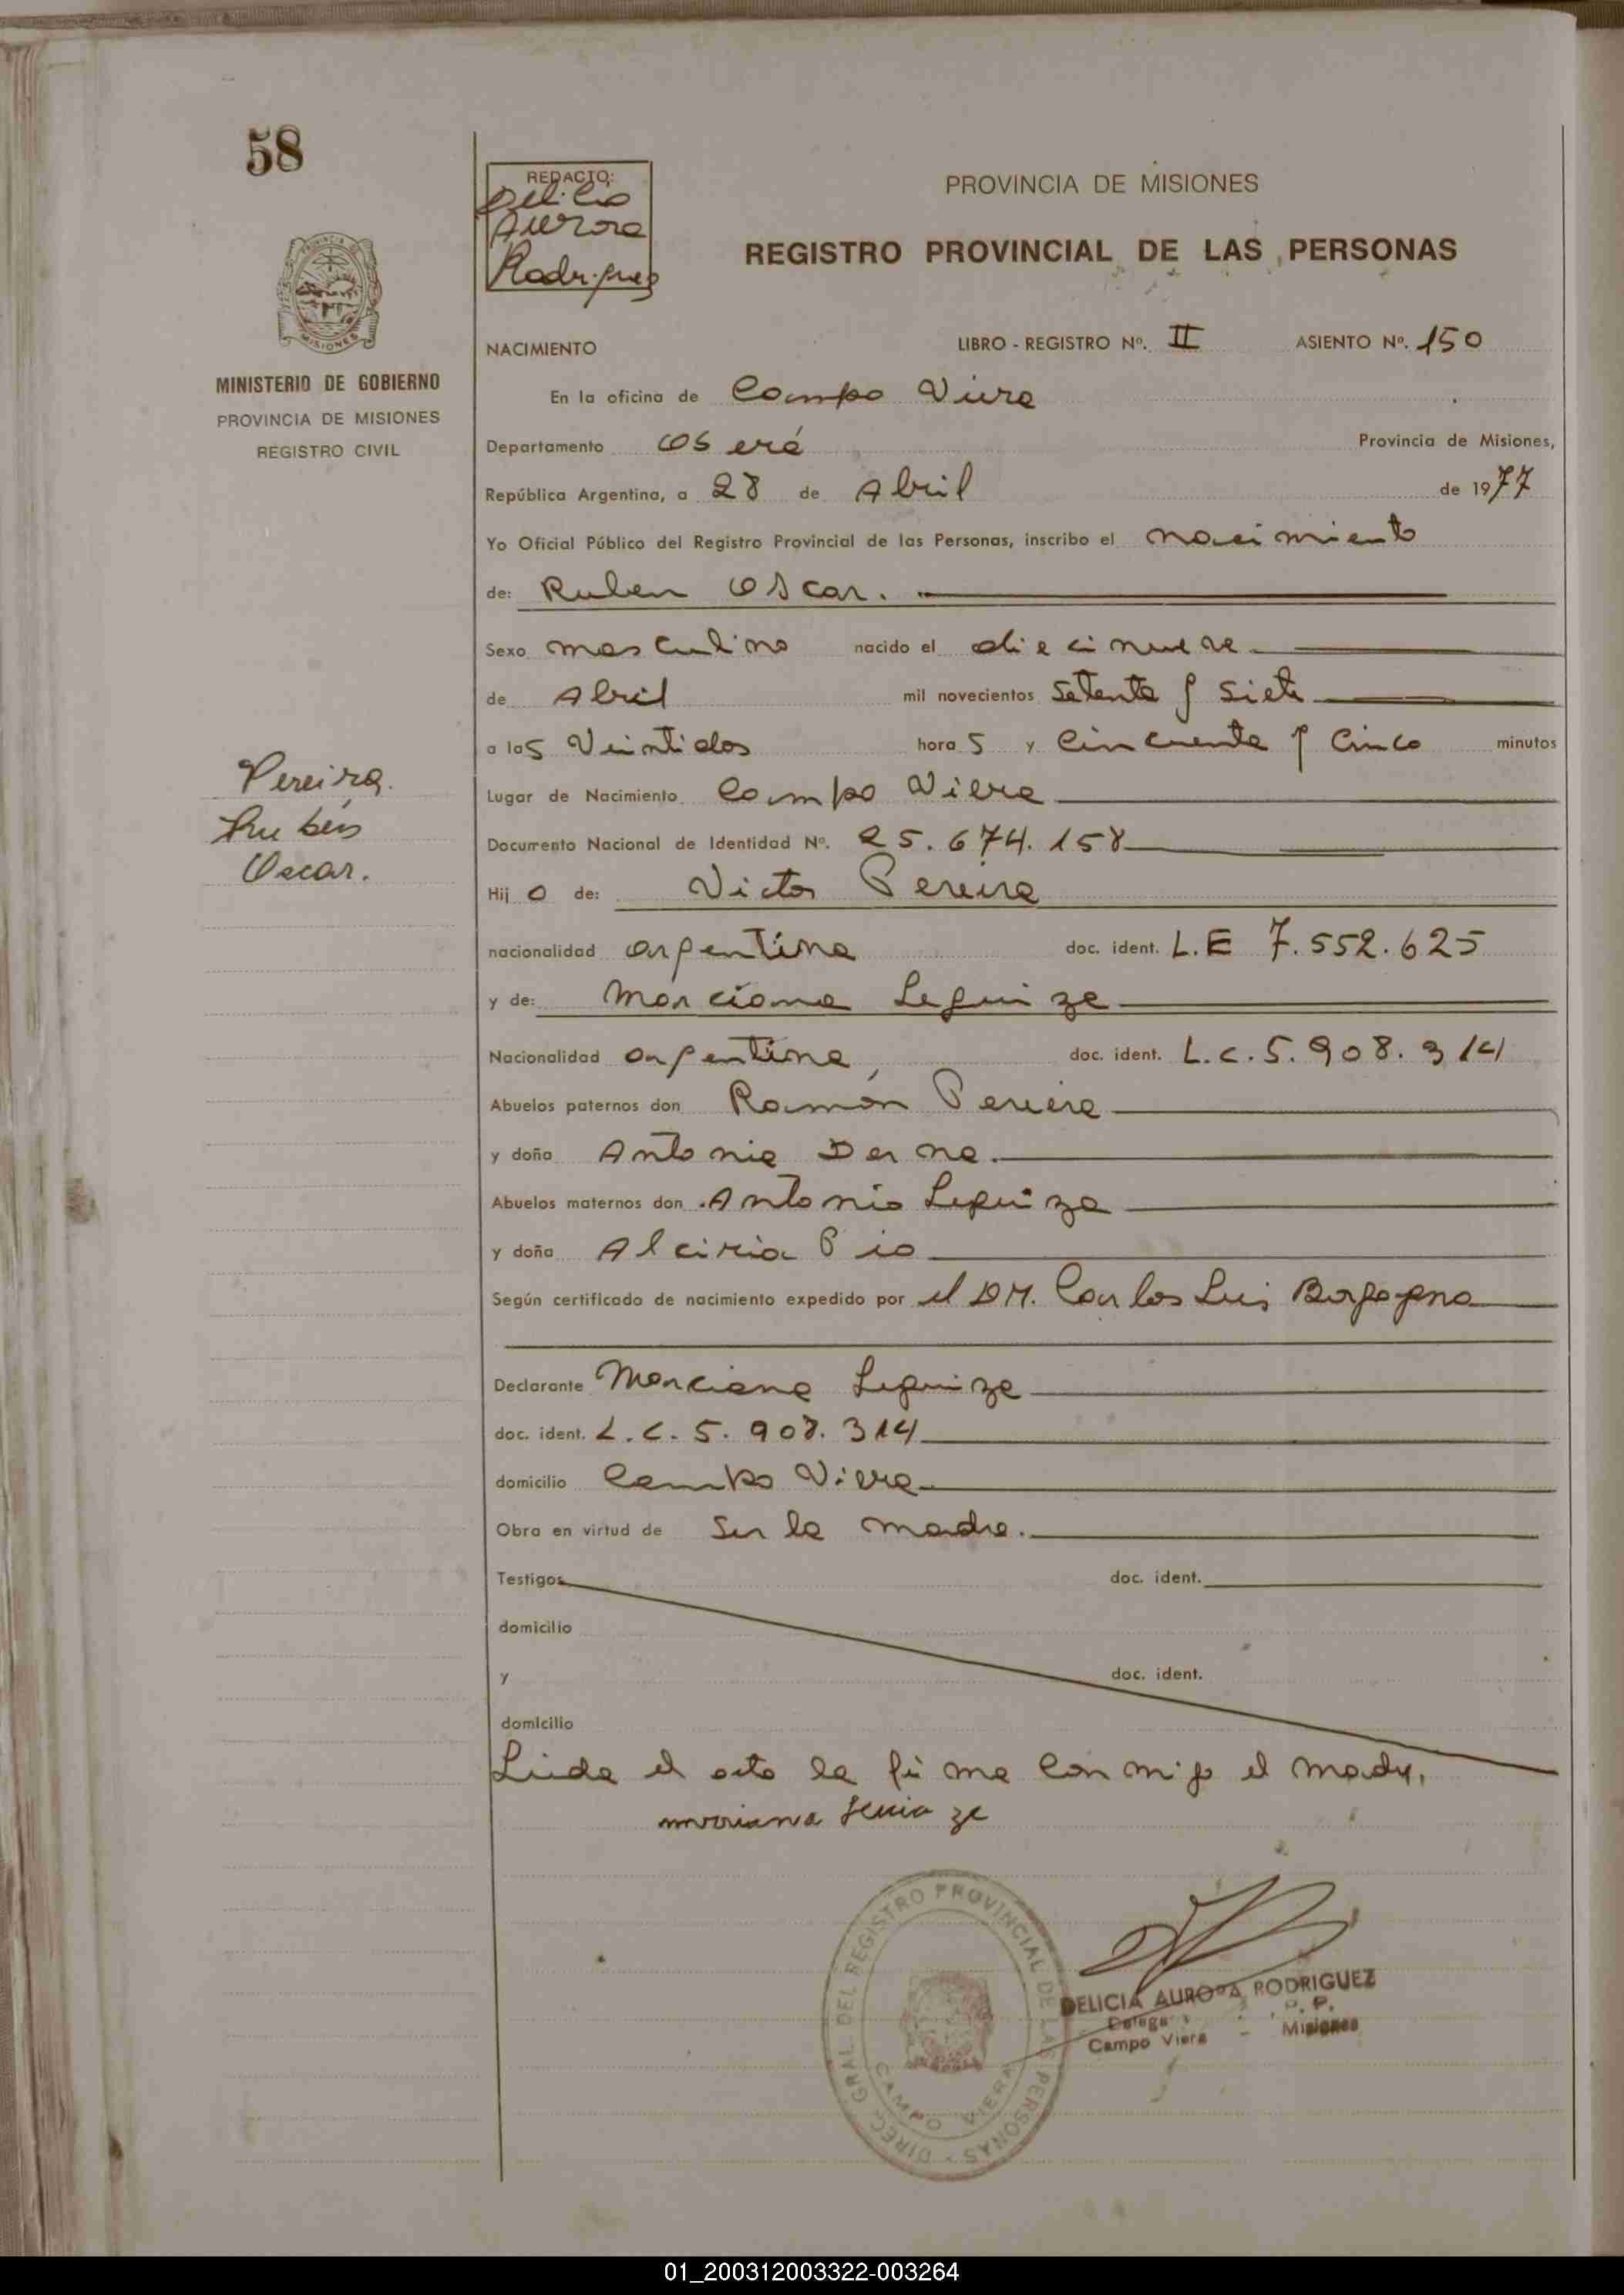 58
REDACTO:
Delicia
Aurora
Rodriguez
PROVINCIA DE MISIONES
REGISTRO PROVINCIAL DE LAS PERSONAS
MISIONES
MINISTERIO DE GOBIERNO
PROVINCIA DE MISIONES
REGISTRO CIVIL
NACIMIENTO LIBRO - REGISTRO Nº. II ASIENTO Nº. 150
En la oficina de Campo Viera
Departamento Oberá Provincia de Misiones,
República Argentina, a 28 de Abril de 1977
Yo Oficial Público del Registro Provincial de las Personas, inscribo el nacimiento
de: Ruben Oscar.
Sexo masculino nacido el diecinueve
de Abril mil novecientos setenta y siete
a las Veintidos horas y Cincuenta y Cinco minutos
Pereira.
Rubén
Oscar.
Lugar de Nacimiento Campo Viera
Documento Nacional de Identidad Nº. 25.674.158
Hijo de: Victor Pereira
nacionalidad argentina doc. ident. L.E 7.552.625
y de: Marciana Leguiza
Nacionalidad argentina, doc. ident. L.C.5.908.314
Abuelos paternos don Ramón Pereira
y doña Antonia Dorna.
Abuelos maternos don Antonio Leguiza
y doña Alciria Pio
Según certificado de nacimiento expedido por el DR. Carlos Luis Borgogno
Declarante Marciana Leguiza
doc. ident. L.C.5.908.314
domicilio Campo Viera
Obra en virtud de ser la madre.
Testigos doc. ident.
domicilio
y doc. ident.
domicilio
Leida el acta la firma conmigo el madre,
DIREC. GRAL. DEL REGISTRO PROVINCIAL DE LAS PERSONAS -
CAMPO VIERA
DELICIA AURORA RODRIGUEZ
Campo Viera - Misiones
01_200312003322-003264